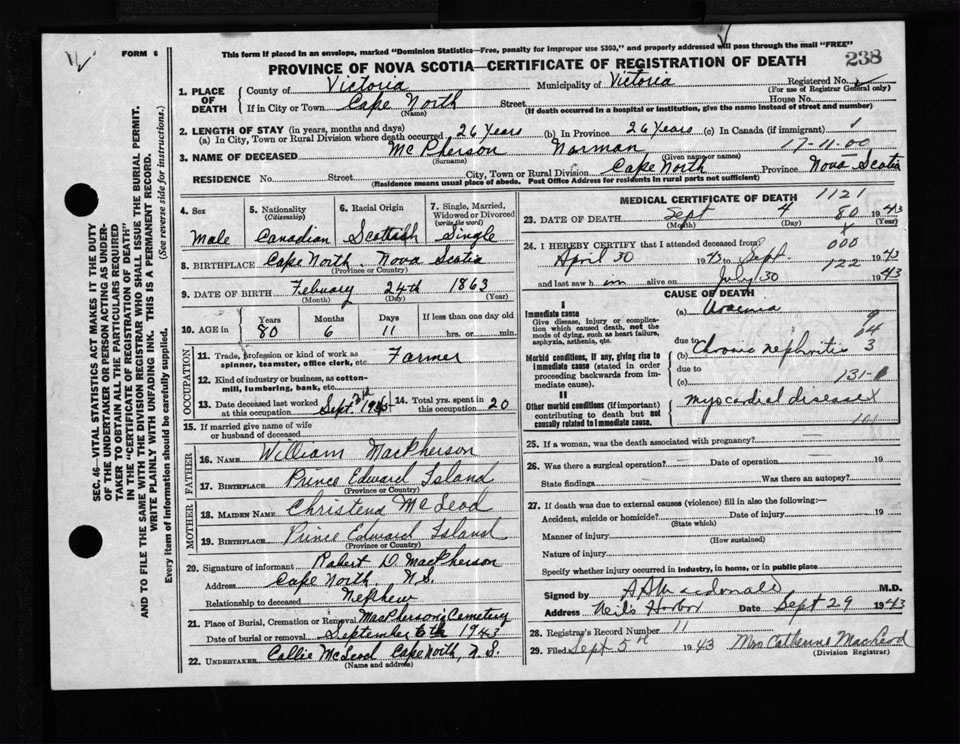 FORM 6
This form if placed in an envelope, marked "Dominion Statistics—Free, penalty for improper use $300," and properly addressed will pass through the mail "FREE"
238
PROVINCE OF NOVA SCOTIA—CERTIFICATE OF REGISTRATION OF DEATH
1. PLACE OF DEATH
County of Victoria Municipality of Victoria Registered No.
(For use of Registrar General only)
If in City or Town Cape North Street House No.
(Name) (If death occurred in a hospital or institution, give the name instead of street and number)
2. LENGTH OF STAY (in years, months and days)
(a) In City, Town or Rural Division where death occurred 26 Years (b) In Province 26 Years (c) In Canada (if immigrant)
17-11-00
3. NAME OF DECEASED McPherson Norman
(Surname) (Given name or names)
RESIDENCE No. Street City, Town or Rural Division Cape North Province Nova Scotia
(Residence means usual place of abode. Post Office Address for residents in rural parts not sufficient)
4. Sex Male
5. Nationality (Citizenship) Canadian
6. Racial Origin Scottish
7. Single, Married, Widowed or Divorced (write the word) Single
8. BIRTHPLACE Cape North Nova Scotia
(Province or Country)
9. DATE OF BIRTH Febuary 24th 1863
(Month) (Day) (Year)
10. AGE in Years Months Days If less than one day old
80 6 11 hrs. or min.
OCCUPATION
11. Trade, profession or kind of work as spinner, teamster, office clerk, etc. Farmer
12. Kind of industry or business, as cotton-mill, lumbering, bank, etc.
13. Date deceased last worked at this occupation Sept
14. Total yrs. spent in this occupation 20
15. If married give name of wife or husband of deceased
FATHER
16. NAME William MacPherson
17. BIRTHPLACE Prince Edward Island
(Province or Country)
MOTHER
18. MAIDEN NAME Christena McLeod
19. BIRTHPLACE Prince Edward Island
(Province or Country)
20. Signature of informant Robert D. MacPherson
Address Cape North, N.S.
Relationship to deceased Nephew
21. Place of Burial, Cremation or Removal MacPherson's Cemetery
Date of burial or removal September 6th 1943
22. UNDERTAKER Collie McLeod Cape North, N.S.
(Name and address)
MEDICAL CERTIFICATE OF DEATH 1121
23. DATE OF DEATH Sept 4 80 1943
(Month) (Day) (Year)
24. I HEREBY CERTIFY that I attended deceased from
April 30 1943 to Sept. 1943
000
122
and last saw him alive on July 30 1943
CAUSE OF DEATH
I
Immediate cause
Give disease, injury or complication which caused death, not the mode of dying, such as heart failure, asphyxia, asthenia, etc.
(a) Uraemia
9
64
3
due to
Morbid conditions, if any, giving rise to immediate cause (stated in order proceeding backwards from immediate cause).
(b) Chronic nephritis
due to
(c)
131-
II
Other morbid conditions (if important) contributing to death but not causally related to immediate cause.
Myocardial disease
25. If a woman, was the death associated with pregnancy?
26. Was there a surgical operation? Date of operation 19
State findings Was there an autopsy?
27. If death was due to external causes (violence) fill in also the following:—
Accident, suicide or homicide? Date of injury 19
(State which)
Manner of injury
(How sustained)
Nature of injury
Specify whether injury occurred in industry, in home, or in public place
Signed by Macdonald M.D.
Address Neil's Harbor Date Sept 29 1943
28. Registrar's Record Number 11
29. Filed Sept 5th 1943 Mrs Catherine MacLeod
(Division Registrar)
SEC. 46—VITAL STATISTICS ACT MAKES IT THE DUTY
OF THE UNDERTAKER OR PERSON ACTING AS UNDER-
TAKER TO OBTAIN ALL THE PARTICULARS REQUIRED
IN THE "CERTIFICATE OF REGISTRATION OF DEATH"
AND TO FILE THE SAME WITH THE DIVISION REGISTRAR WHO SHALL ISSUE THE BURIAL PERMIT.
WRITE PLAINLY WITH UNFADING INK. THIS IS A PERMANENT RECORD.
Every item of information should be carefully supplied. (See reverse side for instructions.)